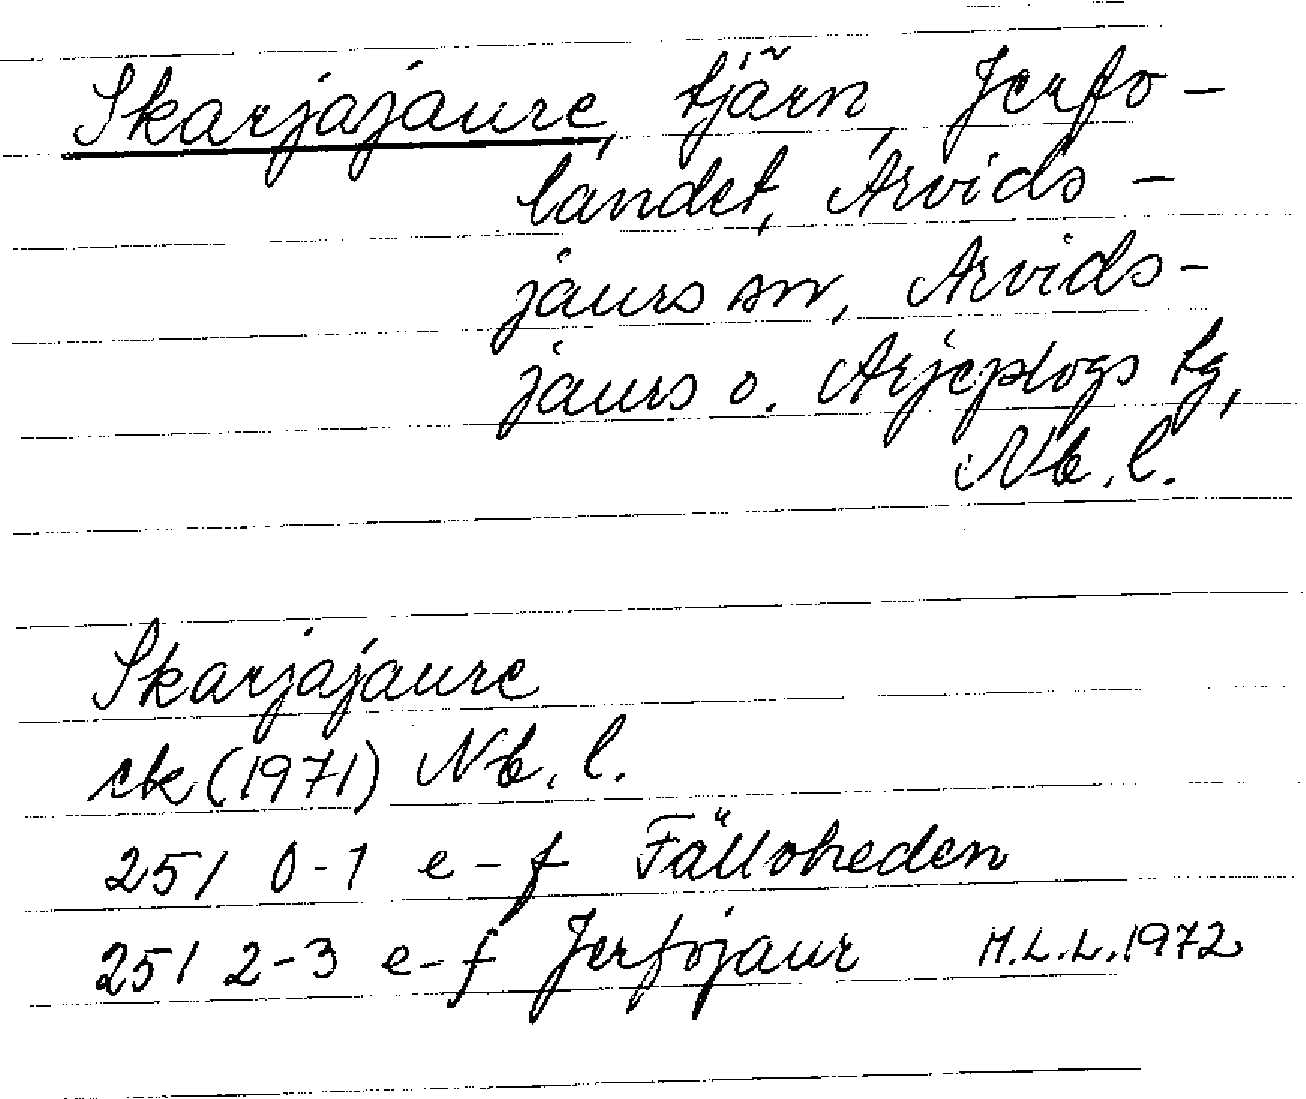 Skarjajaure, tjärn, Jerfo-
landet, Arvids-
jaurs sn, Arvids-
jaurs o. Arjeplogs tg,
Nb. l.
Skarjajaure
ek (1971) Nb. l.
25 I 0-1 e-f Fälloheden
25 I 2-3 e-f Jerfojaur H.L.L. 1972